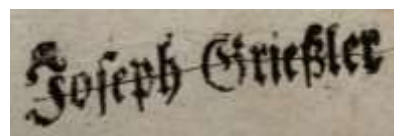 Joſeph Grießler